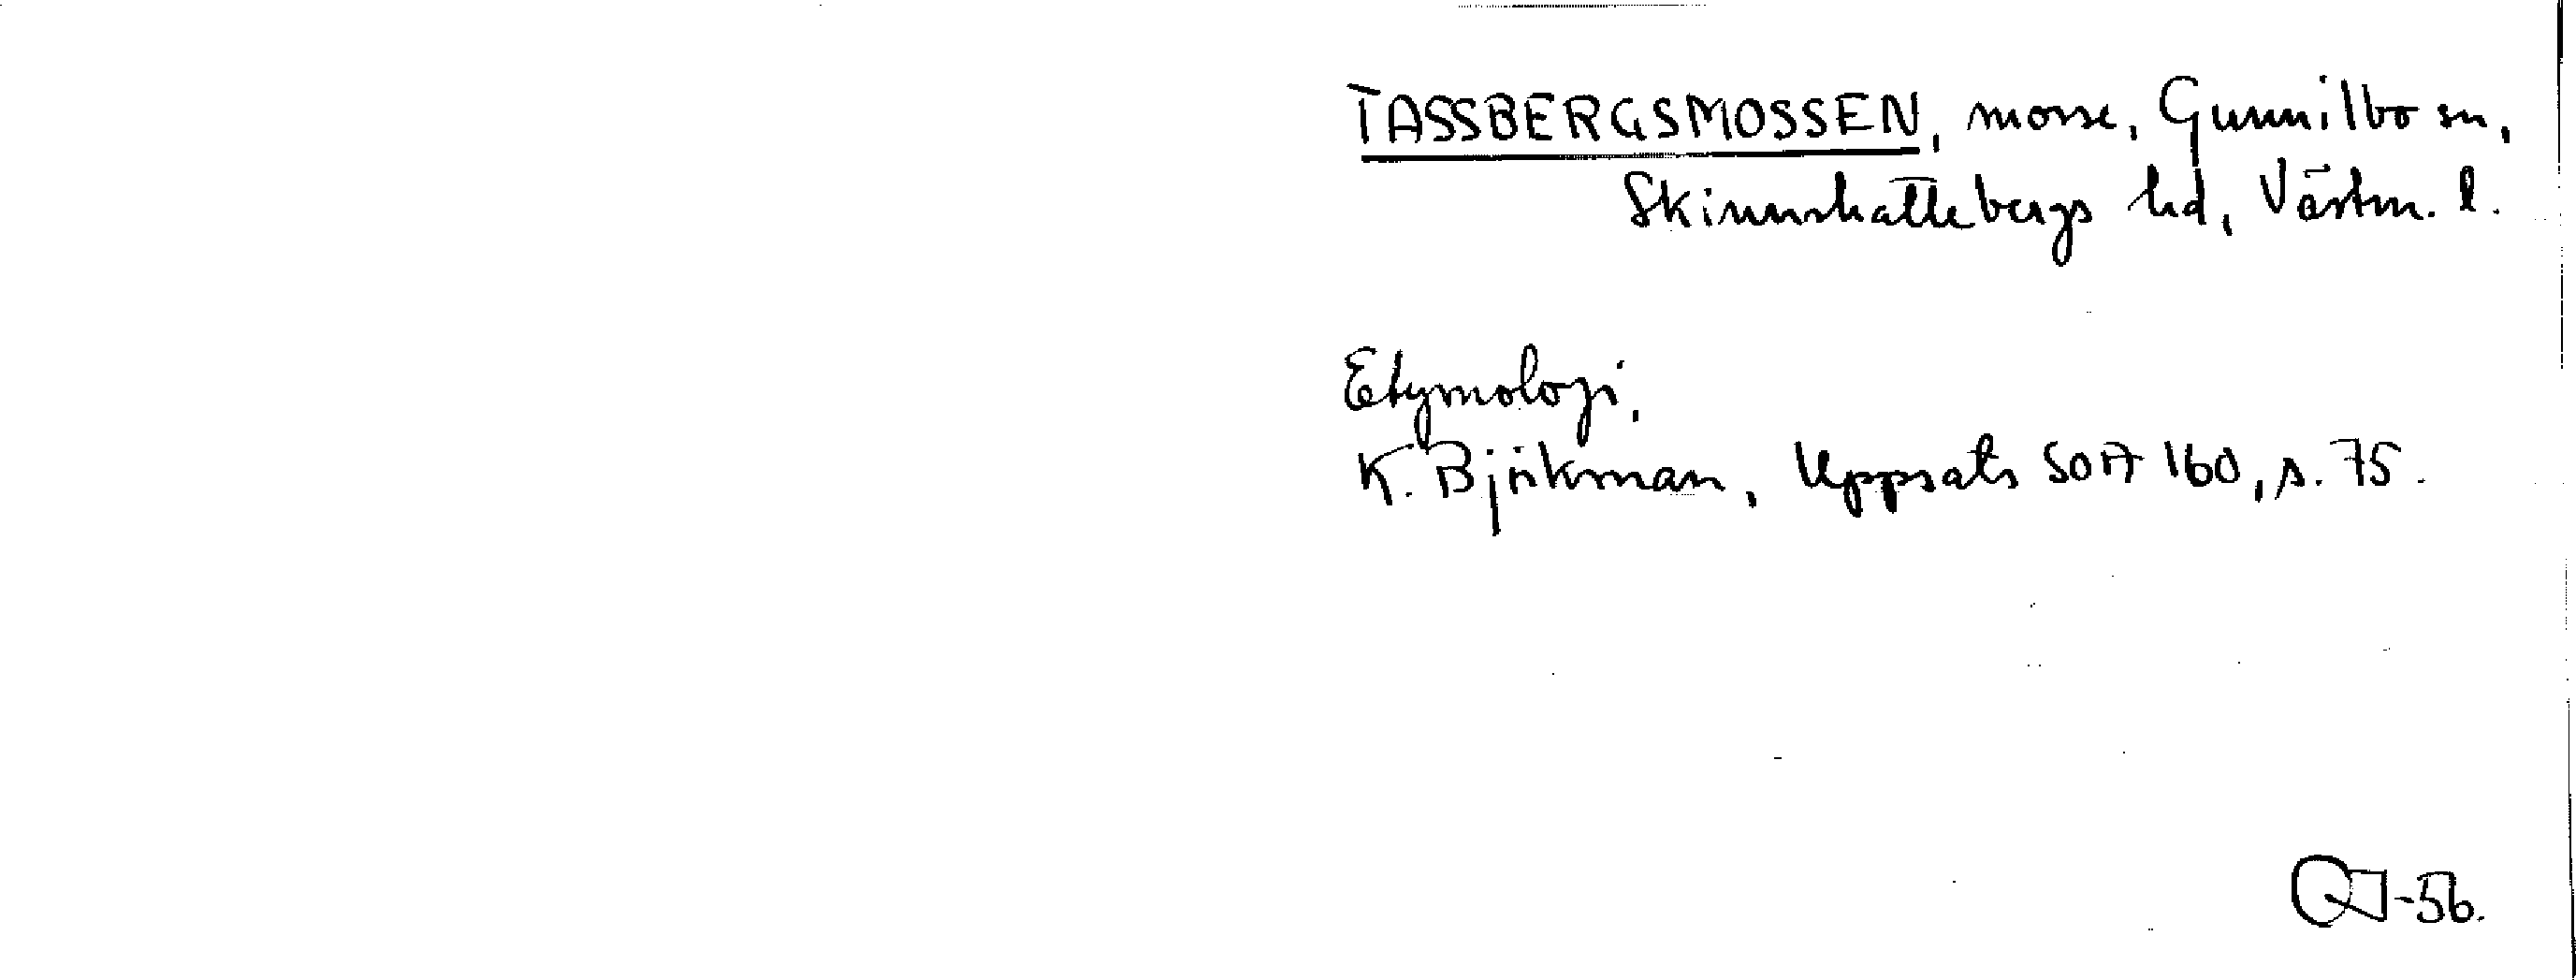 TASSBERGSMOSSEN, mosse, Gunnilbo sn,
Skinnskattebergs hd, Västm. l.
Etymologi.
K. Björkman, Uppsats SOA 160, s. 75.
-56.